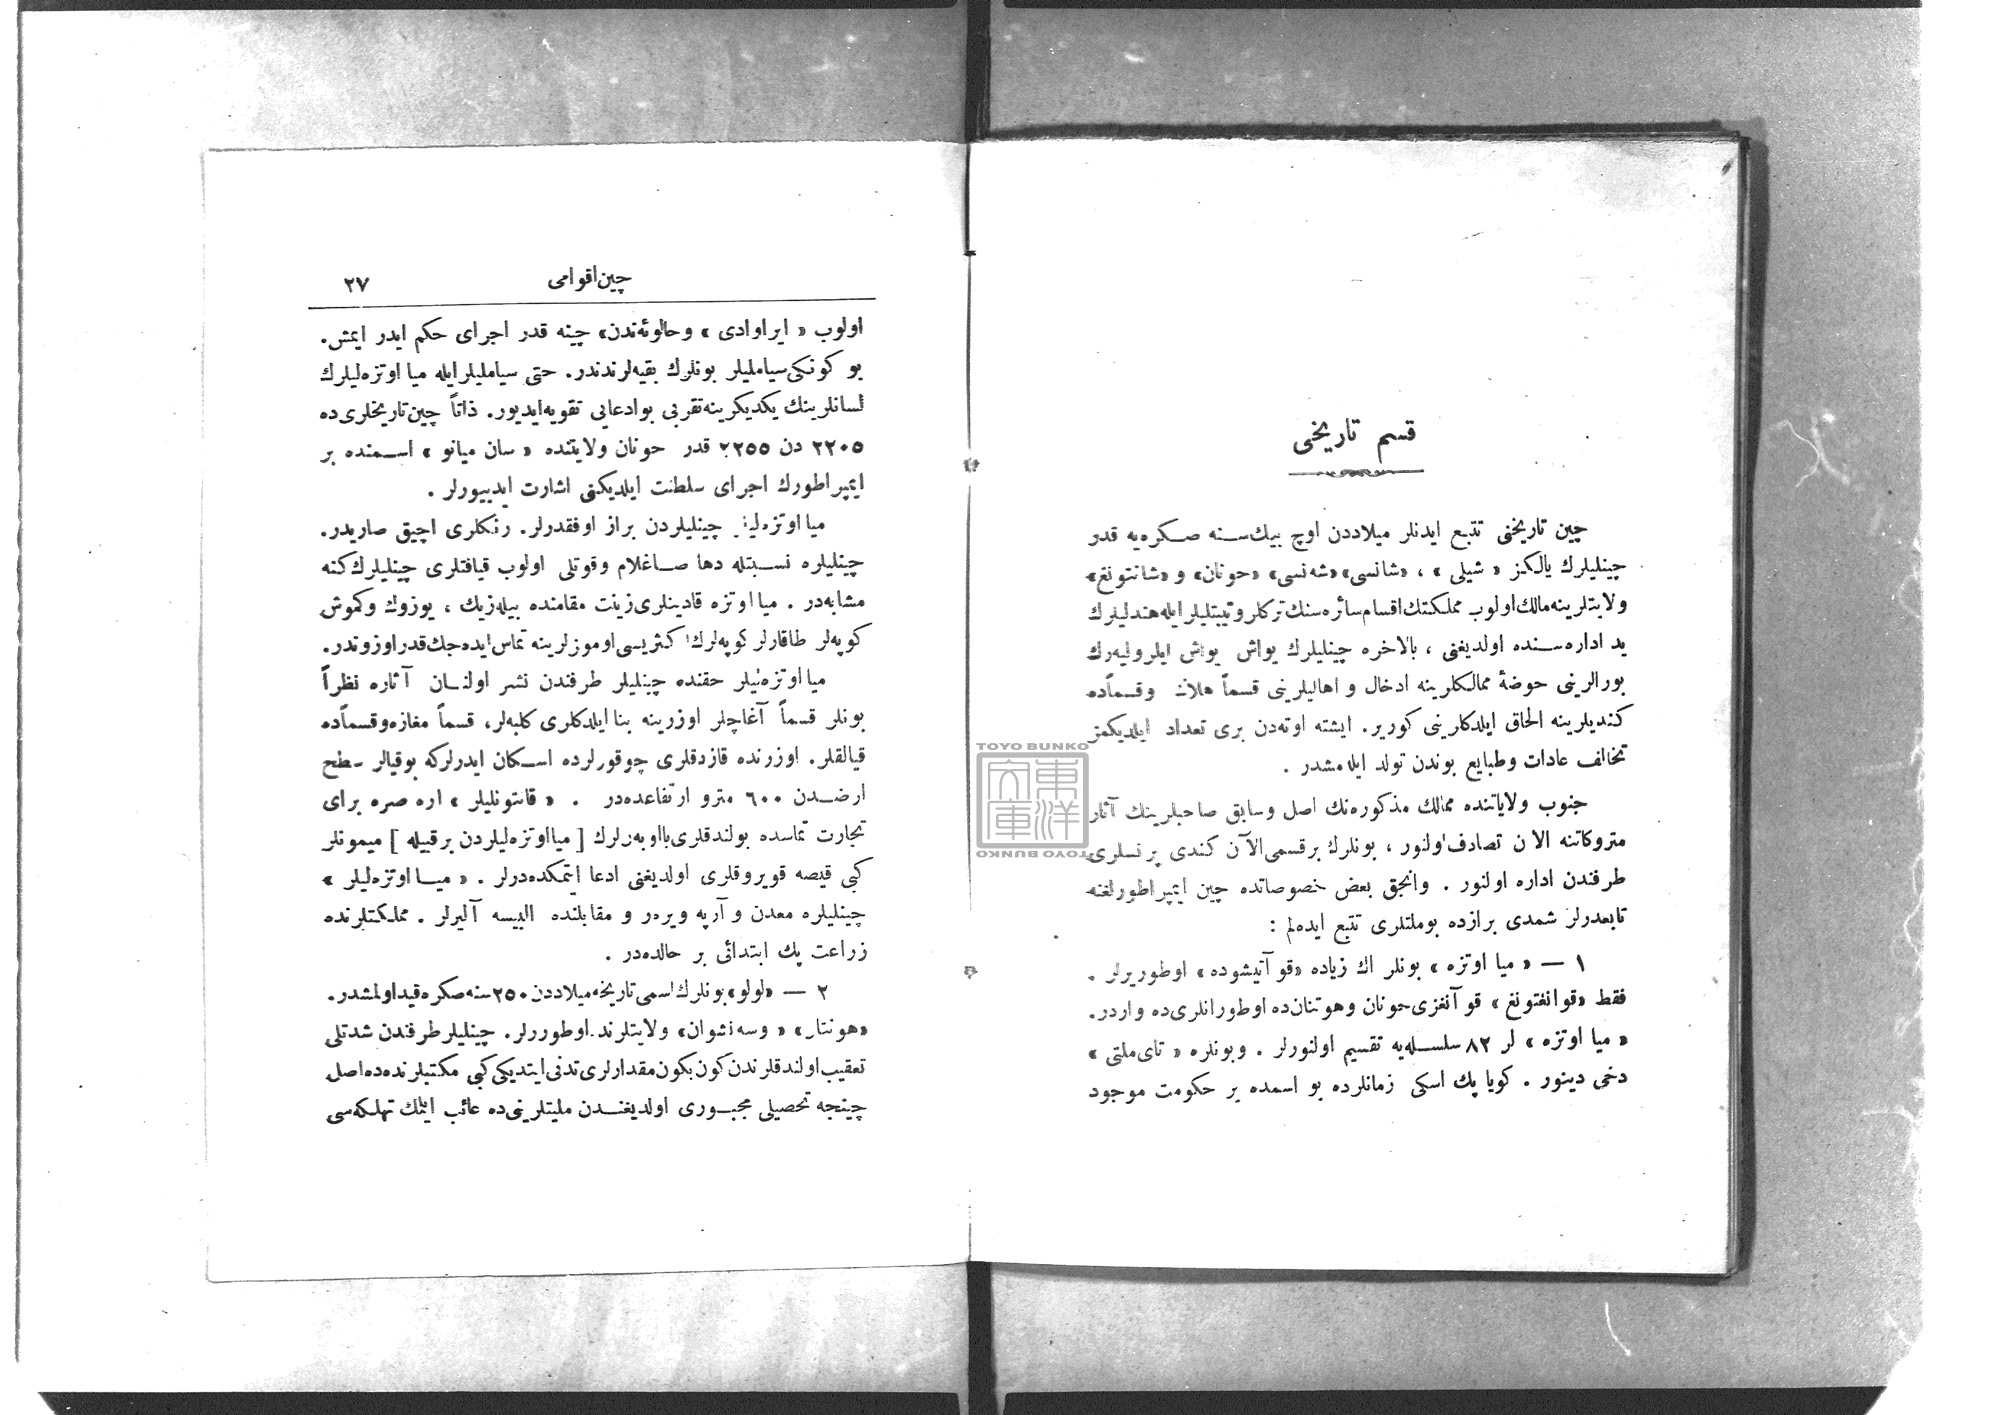 قسم تاریخی
چین تاریخنی تتبع ایدنلر میلاددن اوچ بیك سنه صكره‌یه قدر
چینلیلرك یالكز « شیلی » ، «شانسی» «شه‌نسی» «حونان» و «شانتونغ»
ولایتلرینه مالك اولوب مملكتك اقسام سائره سنك تركلر و تیبتلیلر ایله هندلیلرك
ید اداره سنده اولدیغنی ، بالاخره چینلیلرك یواش یواش ایلرولیه‌رك
بورالرینی حوضهٔ ممالكلرینه ادخال و اهالیلرینی قسماً هلاك وقسماًده
كندیلرینه الحاق ایلدكلرینی كوریر. ایشته اوته‌دن بری تعداد ایلدیكمز
تخالف عادات وطبایع بوندن تولد ایله مشدر .
جنوب ولایاتنده ممالك مذكوره‌نك اصل وسابق صاحبلرینك آثار
متروكاتنه الان تصادف اولنور ، بونلرك برقسمی الآن كندی پرنسلری
طرفندن اداره اولنور . وانجق بعض خصوصاتده چین ایمپراطورلغنه
تابعدرلر شمدی برازده بوملتلری تتبع ایده‌لم :
١ — « میا اوتزه » بونلر اك زیاده «قو آتیشوده» اوطوریرلر .
فقط «قوانغتونغ» قو آنغزی حونان وهوتنان‌ده اوطورانلری‌ده واردر.
« میا اوتزه » لر ٨٢ سلسله‌یه تقسیم اولنورلر . وبونلره « تای ملتی »
دخی دینور . كویا پك اسكی زمانلرده بو اسمده بر حكومت موجود
چین اقوامی ٢٧
اولوب « ایراوادی » وحالوئه‌ندن» چینه قدر اجرای حكم ایدر ایمش.
بو كونكی سیاملیلر بونلرك بقیه‌لرندندر. حتی سیاملیلر ایله میا اوتزه‌لیلرك
لسانلرینك یكدیكرینه تقربی بو ادعایی تقویه ایدیور. ذاتاً چین تاریخلری‌ده
٢٢٠٥ دن ٢٢٥٥ قدر حونان ولایتنده « سان میانو » اسمنده بر
ایمپراطورك اجرای سلطنت ایلدیكنی اشارت ایدییورلر .
میا اوتزه‌لیلر چینلیلردن براز اوفقدرلر. رنكلری اچیق صاریدر.
چینلیلره نسبتله دها صاغلام وقوتلی اولوب قیافتلری چینلیلرك كنه
مشابه‌در . میا اوتزه قادینلری زینت مقامنده بیله‌زیك ، یوزوك وكموش
كوپه‌لر طاقارلر كوپه‌لرك اكثریسی اوموزلرینه تماس ایده‌جك قدر اوزوندر.
میا اوتزه‌لیلر حقنده چینلیلر طرفندن نشر اولنان آثاره نظراً
بونلر قسماً آغاچلر اوزرینه بنا ایلدكلری كلبه‌لر، قسماً مغازه‌وقسماًده
قیالقلر. اوزرنده قازدقلری چوقورلرده اسكان ایدرلركه بوقیالر سطح
ارضدن ٦٠٠ مترو ارتفاعده‌در . « قانتونلیلر » اره صره برای
تجارت تماسده بولندقلری یااوبه‌رلرك [ میااوتزه‌لیلردن برقبیله ] میمونلر
كبی قیصه قویروقلری اولدیغنی ادعا ایتمكده‌درلر . « میا اوتزه‌لیلر »
چینلیلره معدن و آرپه ویرر و مقابلنده البیسه آلیرلر . مملكتلرنده
زراعت پك ابتدائی بر حالده‌در .
٢ — «لولو» بونلرك اسمی تاریخه میلاددن ٢٥٠ سنه صكره قید اولمشدر.
«هونتان» « وسه‌نشوان» ولایتلرنده اوطوررلر. چینلیلر طرفندن شدتلی
تعقیب اولندقلرندن كون بكون مقدارلری تدنی ایتدیكی كبی مكتبلرنده‌ده اصل
چینجه تحصیلی مجبوری اولدیغندن ملیتلرینی‌ده غائب ایتمك تهلكه‌سی